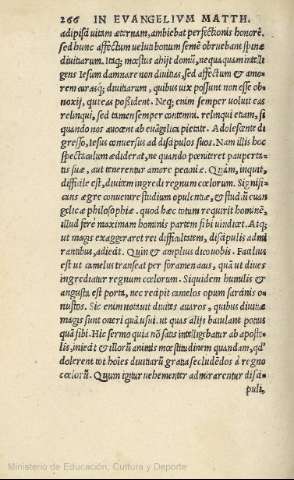 266 IN EVANGELIVM MATTH.
adipisci vitam æternam, ambiebat perfectionis honorē,
sed hunc affectum velut bonum semē obruebant spinæ
divitiarum. Itaq; mœstus abijt domū, nequaquam intelli
gens Iesum damnare non divitias, sed affectum & amo
rem curasq; divitiarum, quibus vix possunt non esse ob-
noxij, qui eas possident. Neq; enim semper voluit eas
relinqui, sed tamen semper contemni. relinqui etiam, si
quando nos avocent ab euāgelica pietate. Adolescente di
gresso, Iesus conversus ad discipulos suos. Nam illis hoc
spectaculum ediderat, ne quando pœniteret pauperta-
tis suæ, aut tenerentur amore pecuniæ. Quàm, inquit,
difficile est, divitem ingredi regnum cœlorum. Signifi-
cans ægre convenire studium opulentiæ, & studiū euan
gelicæ philosophiæ. quod hæc totum requirit hominē,
illud fere maximam hominis partem sibi vindicet. Atq;
ut magis exaggeraret rei difficultatem, discipulis admi
rantibus, adiecit. Quin & amplius dico vobis. Facilius
est ut camelus transeat per foramen acus, quā ut dives
ingrediatur regnum cœlorum. Siquidem humilis &
angusta est porta, nec recipit camelos opum sarcinis o-
nustos. Sic enim notavit divites avaros, quibus divitiæ
magis sunt oneri quā usui. ut quas alijs baiulant potius
quā sibi. Hic sermo quia nō satis intelligebatur ab aposto
lis, iniecit & illorū animis mœstitudinem quandam, qd'
dolerent tot hoīes divitiarū gratia secludēdos à regno
cœlorū. Quum igitur vehementer admirarentur disci-
puli,
Ministerio de Educación, Cultura y Deporte